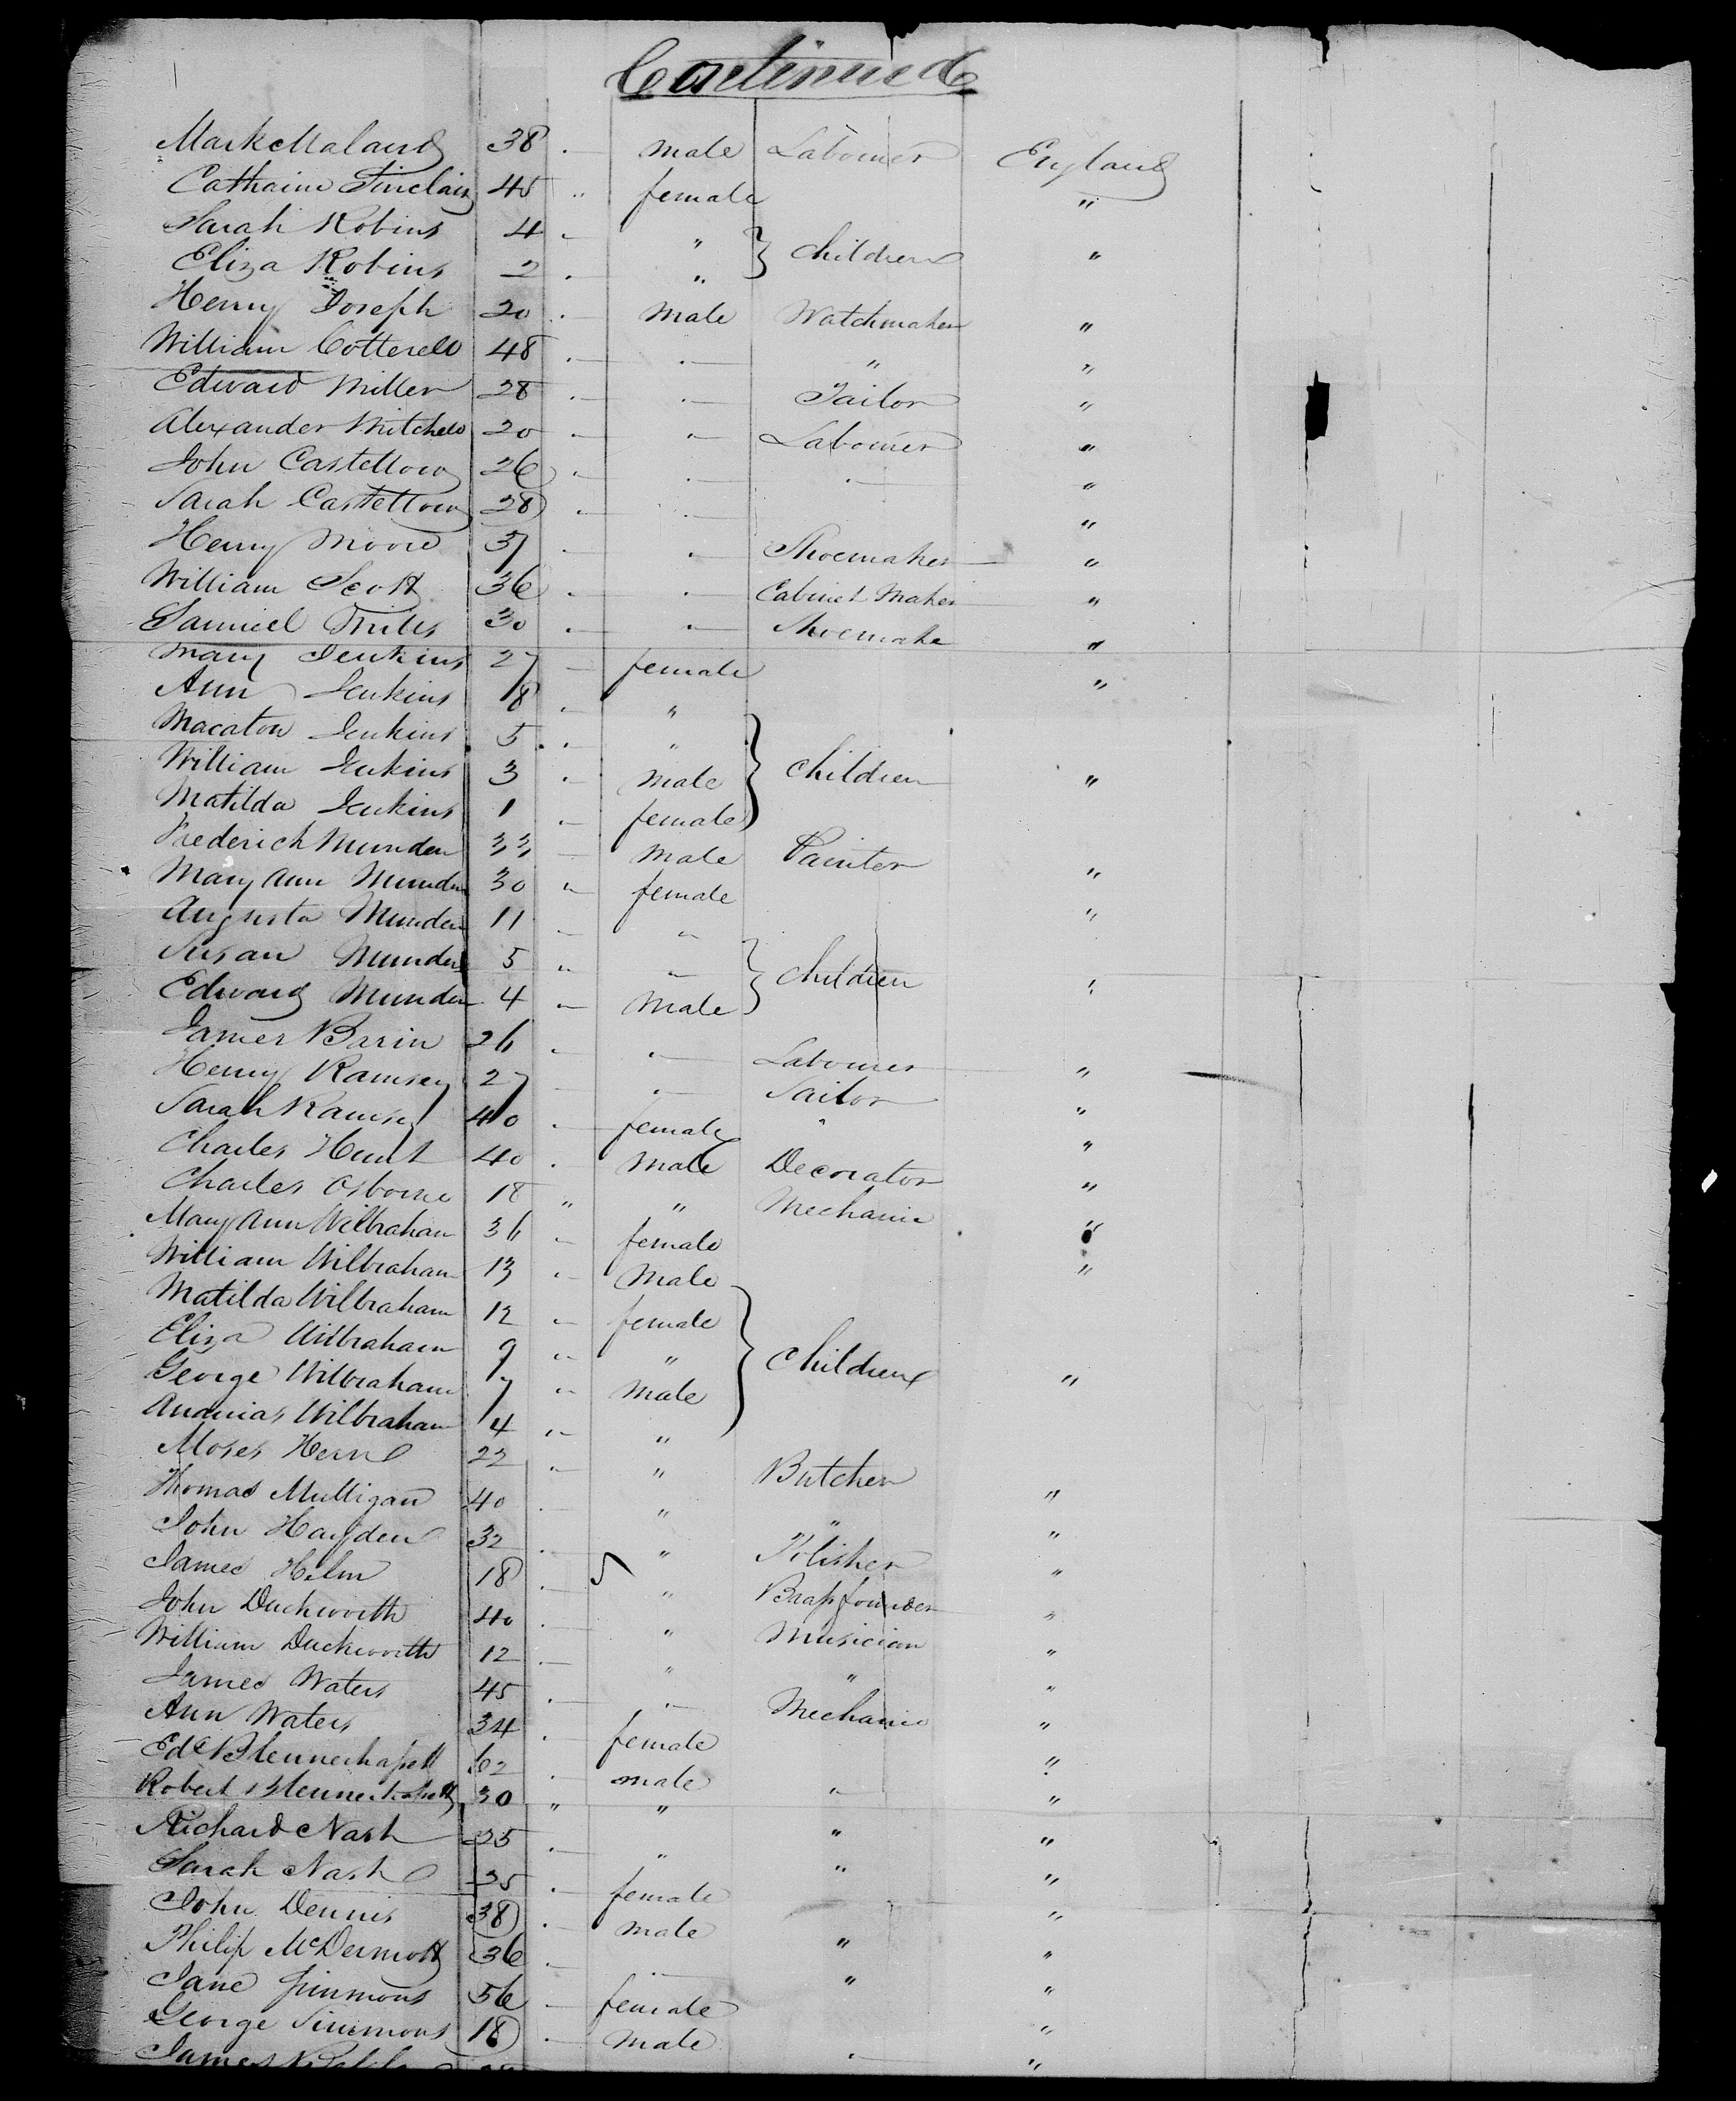 Continued
Mark Maland 38 .— male Labourer England
Catharine Sinclair 45 " female "
Sarah Robins 4 " " } Children "
Eliza Robins 2 .— "
Henry Joseph 20 .— male Watchmaker "
William Cotterell 48 .— .— " "
Edward Miller 28 .— .— Tailor "
Alexander Mitchell 20 .— .— Labourer "
John Castellow 26 .— .— .— "
Sarah Castellow 28 .— .— "
Henry Moore 37 .— .— Shoemaker "
William Scott 36 .— .— Cabinet Maker "
Samuel Mills 30 .— .— Shoemake "
Mary Jenkins 27 — female "
Ann Jenkins 18 .— "
Jenkins 5 " " } Children "
William Jenkins 3 .— male
Matilda Jenkins 1 .— female
Frederick Munden 33 — male Painter "
Mary Ann Munden 30 " female "
Augusta Munden 11 .— "
Susan Munden 5 " " } Children "
Edward Munden 4 " Male
James Barin 26 .— .— Labourer "
Henry Ramsey 27 — .— Sailor "
Sarah Ramsey 40 .— female " "
Charles Hunt 40 .— Male Decorator "
Charles Osborne 18 " " Mechanic "
Mary Ann Wilbraham 36 " female "
William Wilbraham 13 " Male
Matilda Wilbraham 12 " female
Eliza Wilbraham 9 " " } Children "
George Wilbraham 7 " Male
Ananias Wilbraham 4 " "
Moses Hern 22 " " Butcher "
Thomas Mulligan 40 .— " " "
John Hayden 32 .— " Polisher "
James Helm 18 .— " Brassfounder "
John Duckworth 40 .— " Musician "
William Duckworth 12 .— " " "
James Waters 45 .— .— Mechanic "
Ann Waters 34 .— female "
Edd Blennerhassett 62 .— male " "
Robert Blennerhassett 30 " " " "
Richard Nash 35 .— " " "
Sarah Nash 35 .— female "
John Dennis 38 .— male " "
Philip McDermott 36 .— .— " "
Jane Simmons 56 — female "
George Simmons 18 .— male .— "
James